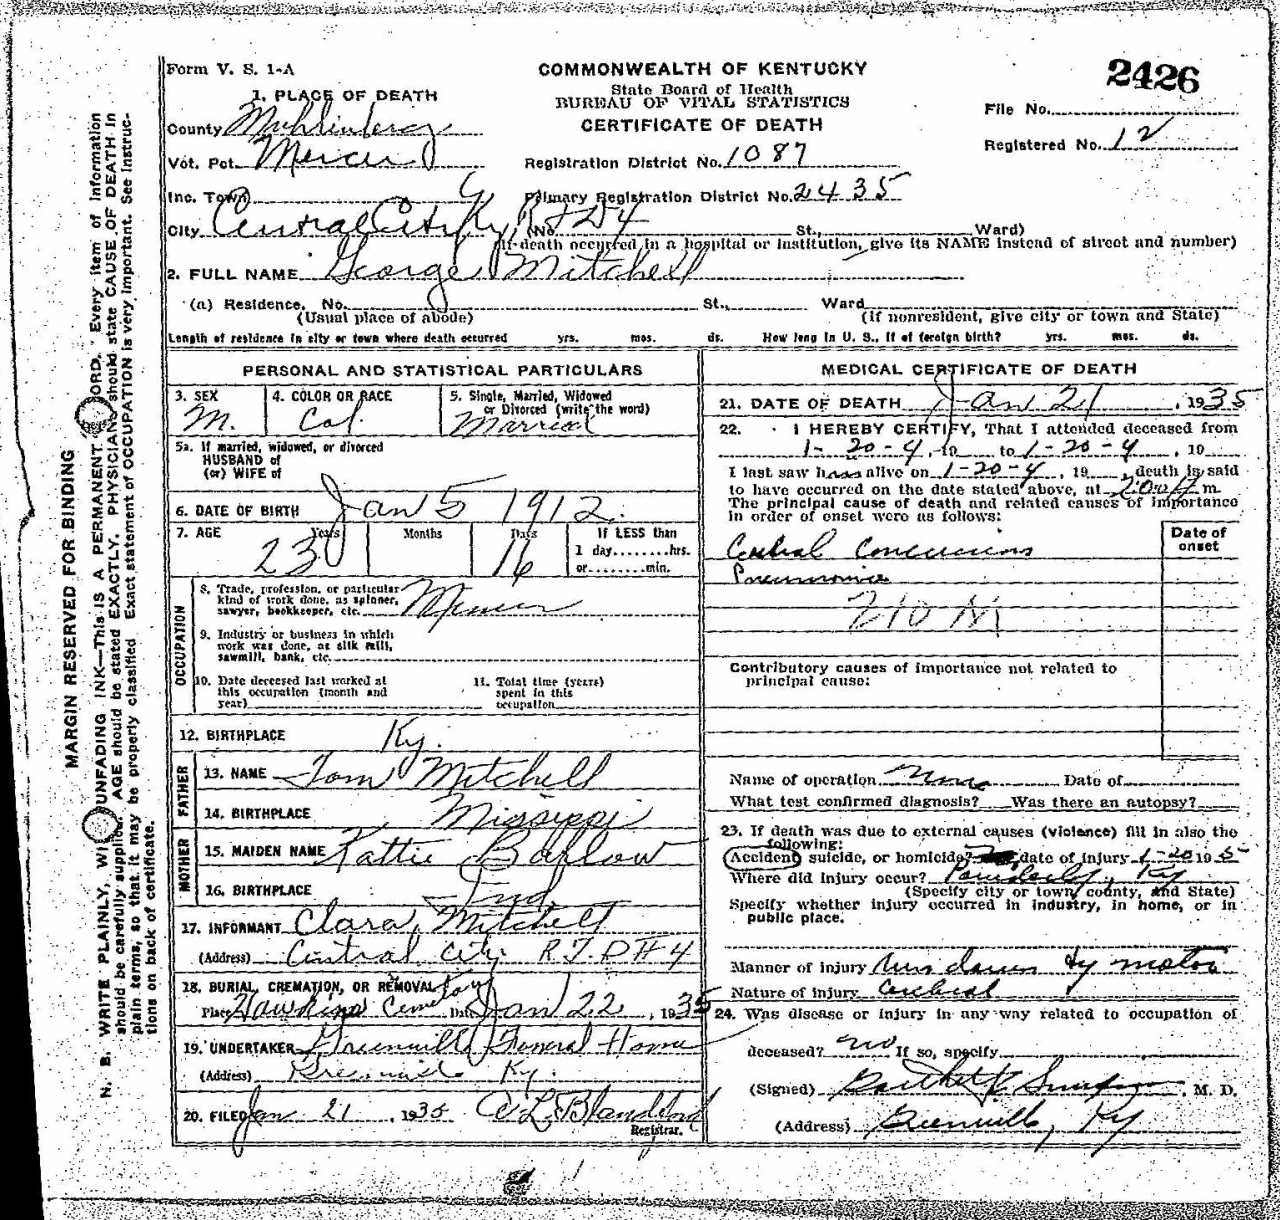 Form V. S. 1-A
COMMONWEALTH OF KENTUCKY
State Board of Health
BUREAU OF VITAL STATISTICS
CERTIFICATE OF DEATH
2426
File No.
Registered No. 12
1. PLACE OF DEATH
County Muhlenberg
Vot. Pct. Mercer
Registration District No. 1087
Inc. Town
Primary Registration District No. 2435
City Central City Ky, R F D 4 (No. St., Ward)
(If death occurred in a hospital or institution, give its NAME instead of street and number)
2. FULL NAME George Mitchell
(a) Residence, No. St., Ward
(Usual place of abode) (If nonresident, give city or town and State)
Length of residence in city or town where death occurred yrs. mos. ds. How long in U. S., if of foreign birth? yrs. mos. ds.
PERSONAL AND STATISTICAL PARTICULARS
3. SEX 4. COLOR OR RACE 5. Single, Married, Widowed
or Divorced (write the word)
M. Col. Married
5a. If married, widowed, or divorced
HUSBAND of
(or) WIFE of
6. DATE OF BIRTH Jan 5 1912.
7. AGE Years Months Days If LESS than
1 day........hrs.
or........min.
23 16
OCCUPATION
8. Trade, profession, or particular
kind of work done, as spinner,
sawyer, bookkeeper, etc. Miner
9. Industry or business in which
work was done, as silk mill,
sawmill, bank, etc.
10. Date deceased last worked at
this occupation (month and
year)
11. Total time (years)
spent in this
occupation
12. BIRTHPLACE Ky.
FATHER
13. NAME Tom Mitchell
14. BIRTHPLACE Missippi
MOTHER
15. MAIDEN NAME Kattie Barlow
16. BIRTHPLACE Ind.
17. INFORMANT Clara Mitchell
(Address) Central City R.F.D #4
18. BURIAL, CREMATION, OR REMOVAL
Place Hawkins Cemetary Date Jan 22, 1935
19. UNDERTAKER Greenville Funeral Home
(Address) Greenville Ky.
20. FILED Jan 21, 1935 Blandford
Registrar.
MEDICAL CERTIFICATE OF DEATH
21. DATE OF DEATH Jan 21, 1935
22. I HEREBY CERTIFY, That I attended deceased from
1-20-4, 19 to 1-20-4, 19
I last saw him alive on 1-20-4, 19 , death is said
to have occurred on the date stated above, at m.
The principal cause of death and related causes of importance
in order of onset were as follows:
Date of
onset
Cerebral Concussions
Pneumonia
210 M
Contributory causes of importance not related to
principal cause:
Name of operation None Date of
What test confirmed diagnosis? Was there an autopsy?
23. If death was due to external causes (violence) fill in also the
following:
Accident, suicide, or homicide? date of injury 1-20 1935
Where did injury occur? Powderly, Ky
(Specify city or town, county, and State)
Specify whether injury occurred in industry, in home, or in
public place.
Manner of injury Run down by motor
Nature of injury Cerebral
24. Was disease or injury in any way related to occupation of
deceased? no If so, specify
(Signed) M. D.
(Address) Greenville, Ky
MARGIN RESERVED FOR BINDING
N. B. WRITE PLAINLY, WITH UNFADING INK—THIS IS A PERMANENT RECORD. Every item of information
should be carefully supplied. AGE should be stated EXACTLY. PHYSICIANS should state CAUSE OF DEATH in
plain terms, so that it may be properly classified. Exact statement of OCCUPATION is very important. See instruc-
tions on back of certificate.